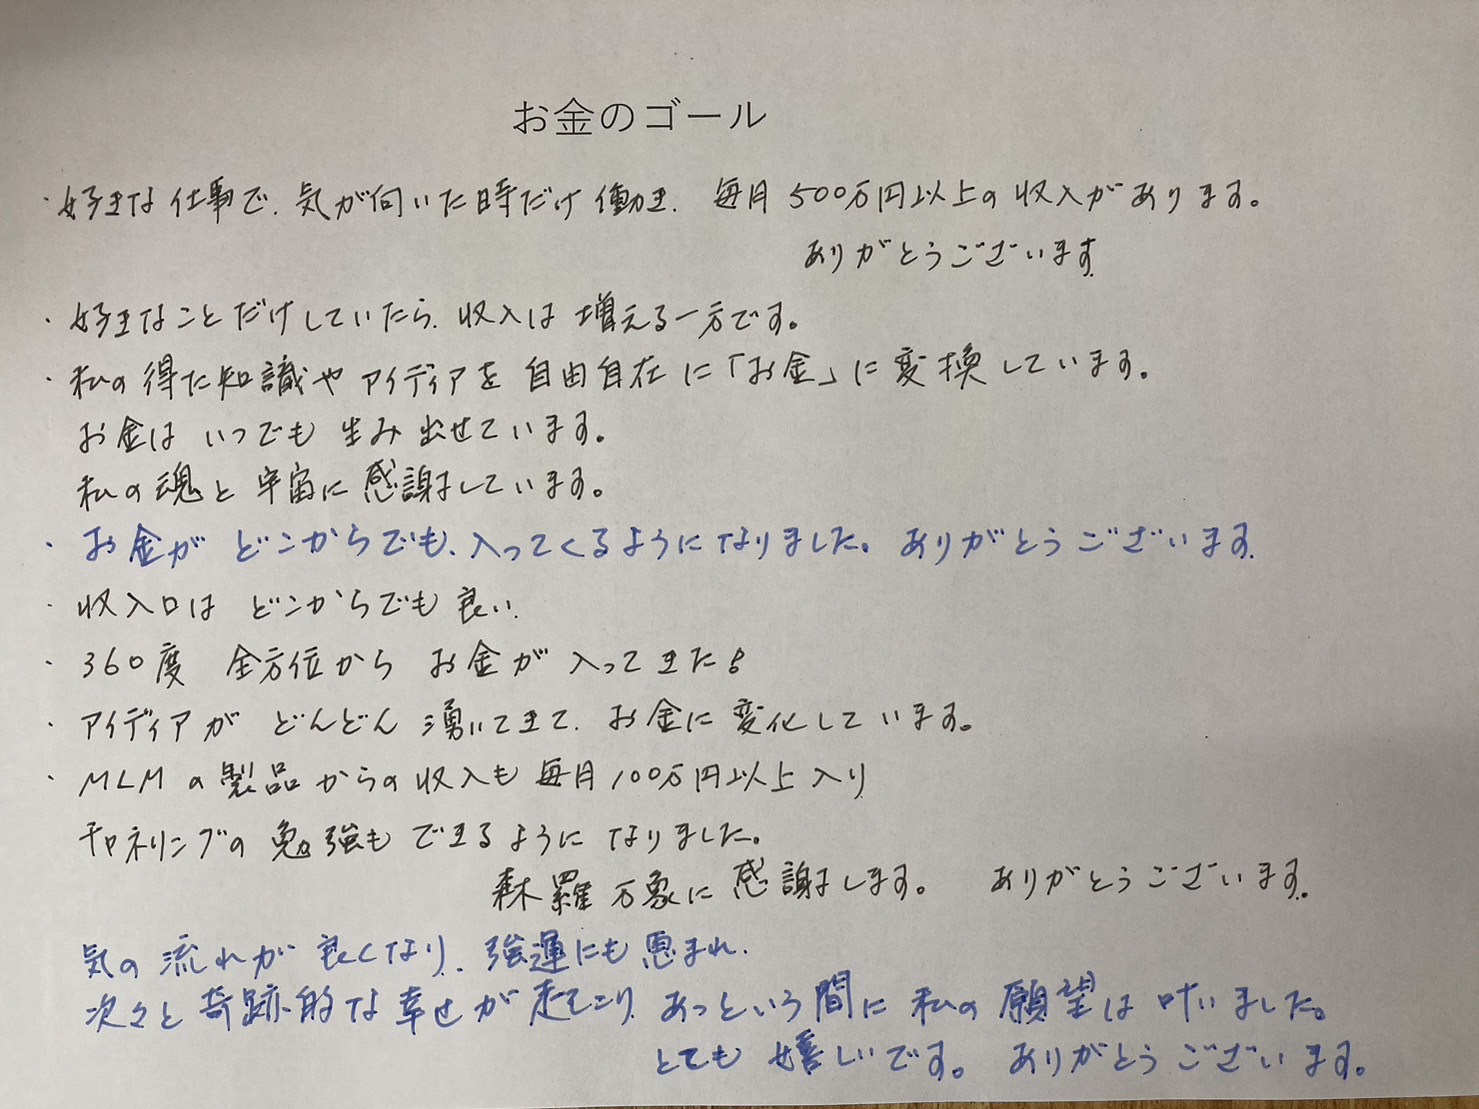 お金のゴール
・好きな仕事で、気が向いた時だけ働き、毎月500万円以上の収入があります。
ありがとうございます
・好きなことだけしていたら、収入は増える一方です。
・私の得た知識やアイディアを自由自在に「お金」に変換しています。
お金はいつでも生み出せています。
私の魂と宇宙に感謝しています。
・お金がどこからでも、入ってくるようになりました。ありがとうございます
・収入口はどこからでも良い
・360度 全方位からお金が入ってきた!
・アイディアがどんどん湧いてきて、お金に変化しています。
・MLMの製品からの収入も毎月100万円以上入り
チャネリングの勉強もできるようになりました。
森羅万象に感謝します。 ありがとうございます。
気の流れが良くなり、強運にも恵まれ、
次々と奇跡的な幸せが起こり あっという間に私の願望は叶いました。
とても嬉しいです。 ありがとうございます。